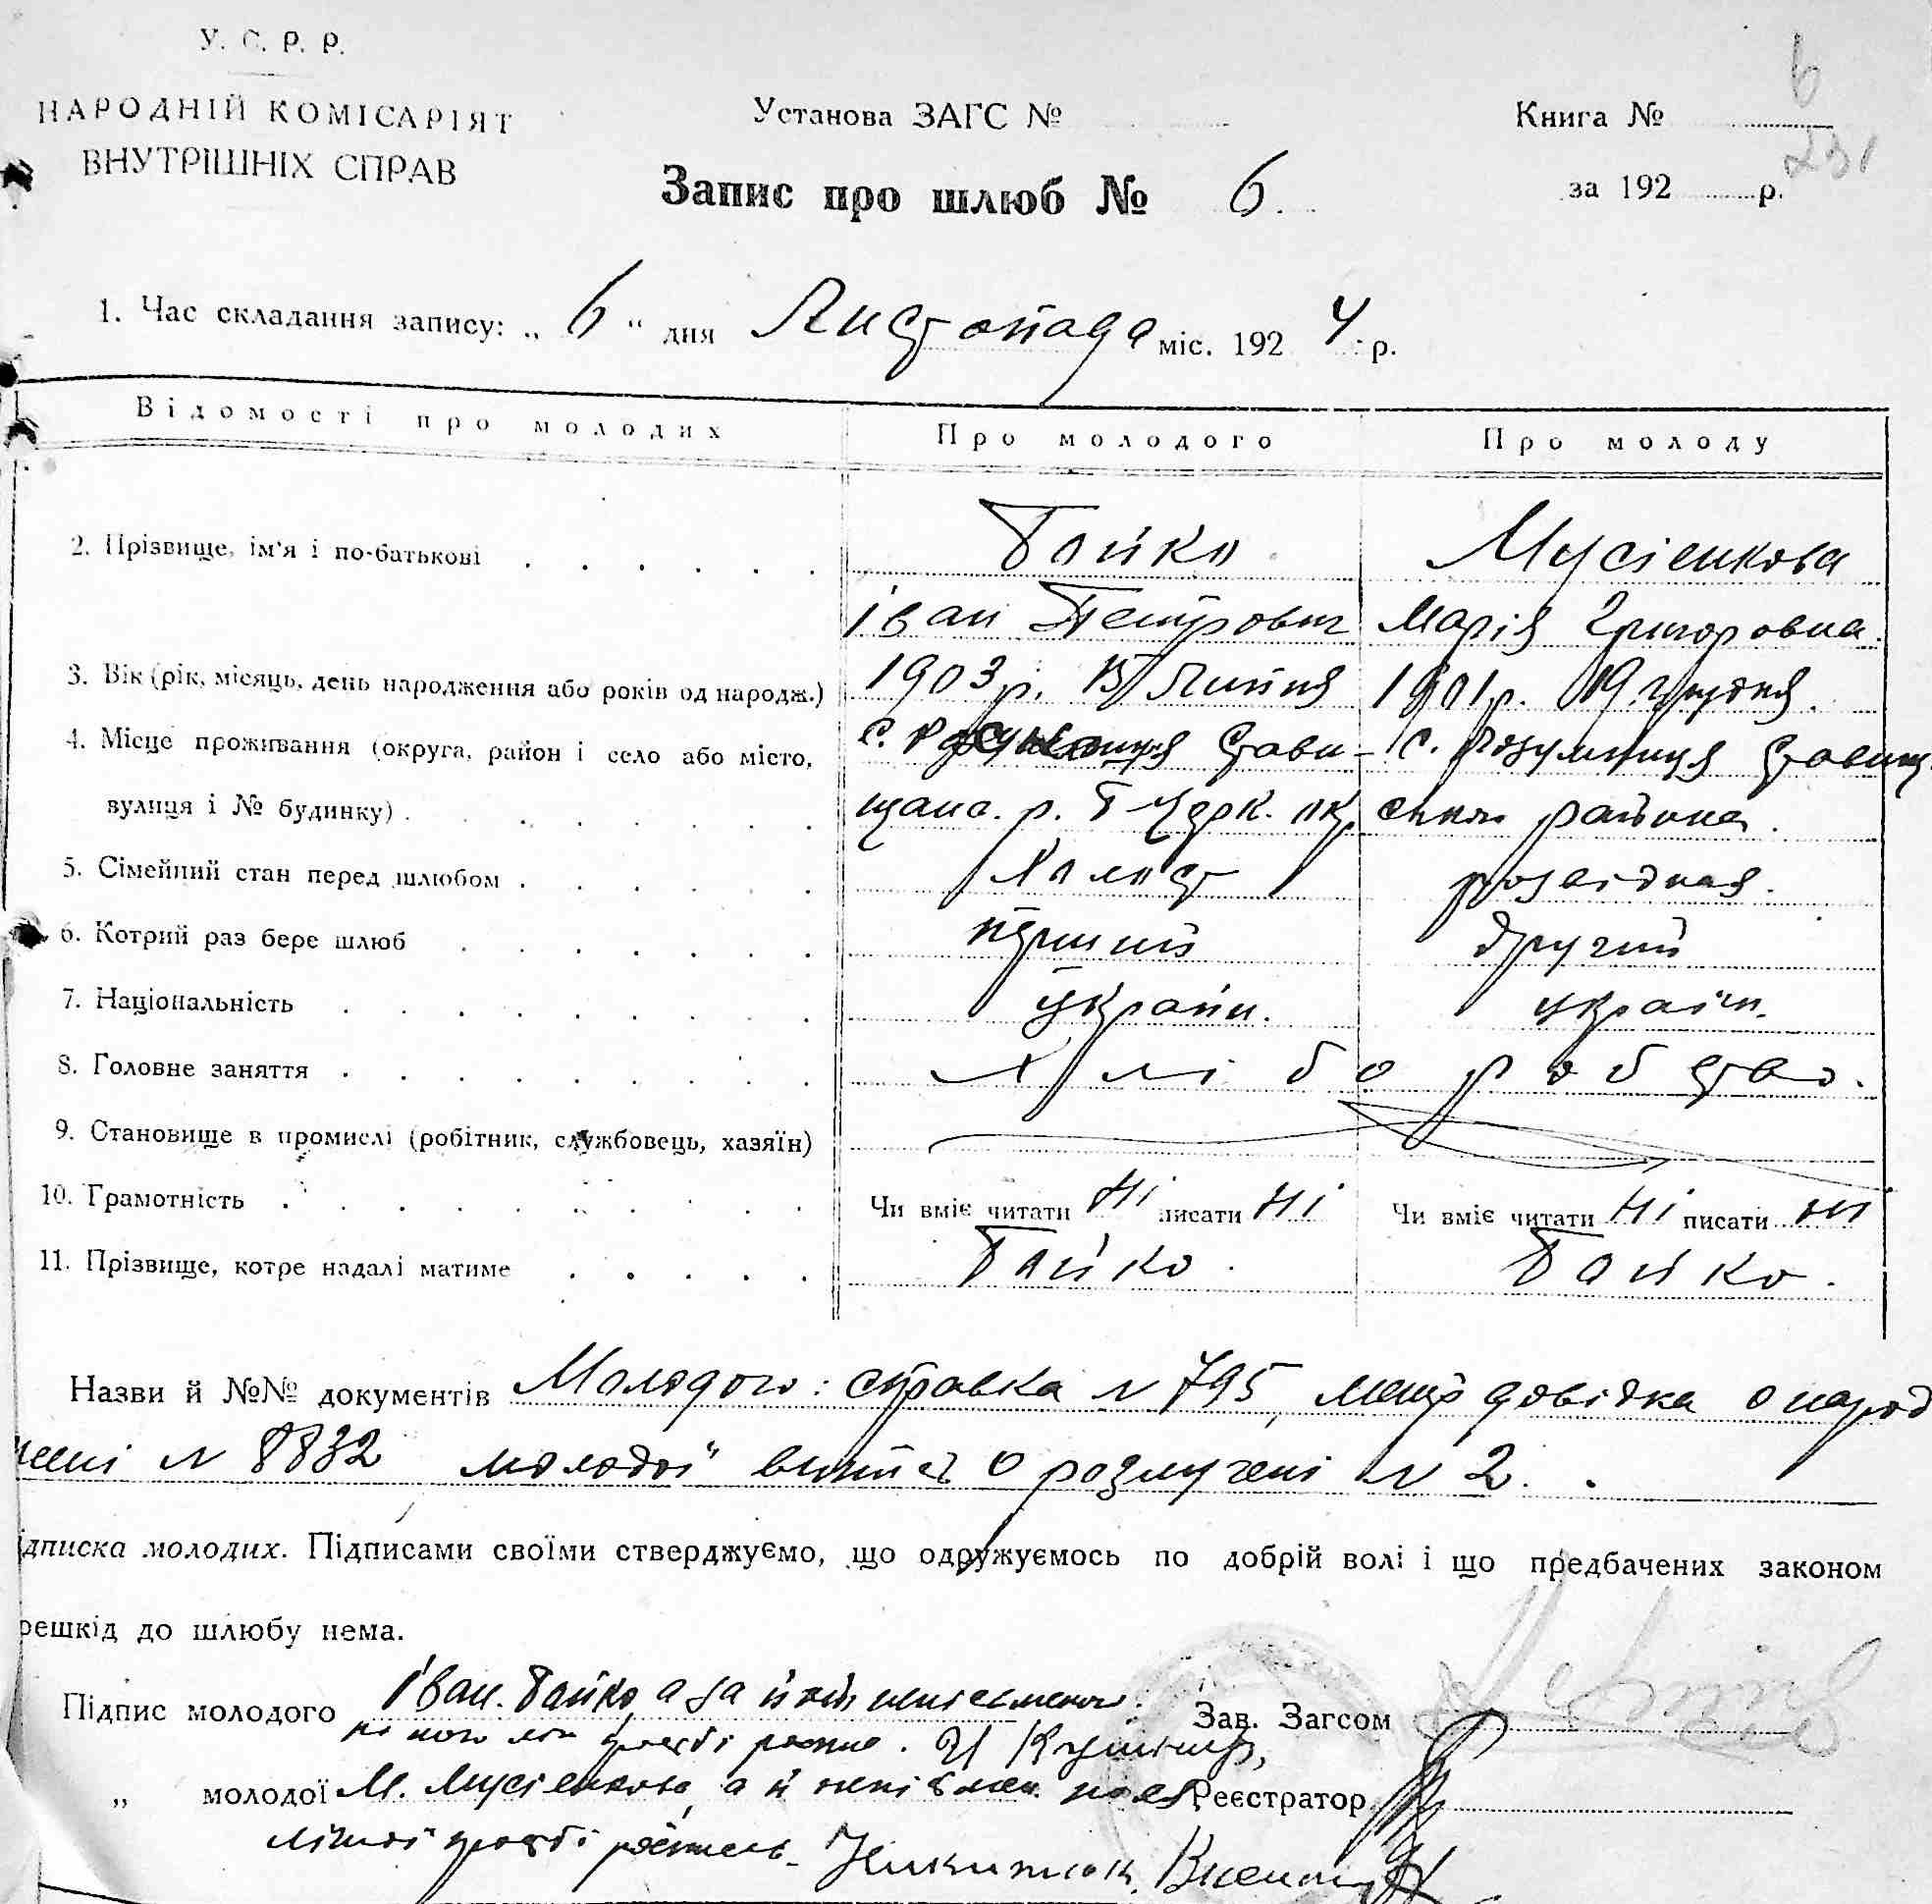 У. С. Р. Р.
НАРОДНІЙ КОМІСАРІЯТ
ВНУТРІШНІХ СПРАВ
Установа ЗАГС №
Книга № 6
231
за 192 р.
Запис про шлюб № 6.
1. Час складання запису: „ 6 “ дня Листопада міс. 192 4 р.
Відомості про молодих Про молодого Про молоду
2. Прізвище, ім'я і по-батькові Бойко Мусіенкова
Іван Петрович Марія Григоровна
3. Вік (рік, місяць, день народження або років од народж.) 1903 р. 15 Липня 1901 р. 19 грудня.
4. Місце проживання (округа, район і село або місто, с. Розумниця Стави- с. Розумниця Ставищ
вулиця і № будинку) щанс. р. Б Церк. окр. ського района.
5. Сімейний стан перед шлюбом Холост розвідная.
6. Котрий раз бере шлюб перший другий
7. Національність україн. україн.
8. Головне заняття Хліборобство.
9. Становище в промислі (робітник, службовець, хазяїн)
10. Грамотність Чи вміє читати ні писати ні Чи вміє читати ні писати ні
11. Прізвище, котре надалі матиме Бойко. Бойко.
Назви й №№ документів Молодого: справка N 795, метр довідка о народ
жені N 8832 молодої витяг о розлучені N 2.
ідписка молодих. Підписами своїми стверджуємо, що одружуємось по добрій волі і що предбачених законом
решкід до шлюбу нема.
Підпис молодого Іван Бойко, а за його неписьменого
Зав. Загсом
просьбі
„ молодої М. Мусіенкова, а й неписьмен.
Реєстратор
просьбі